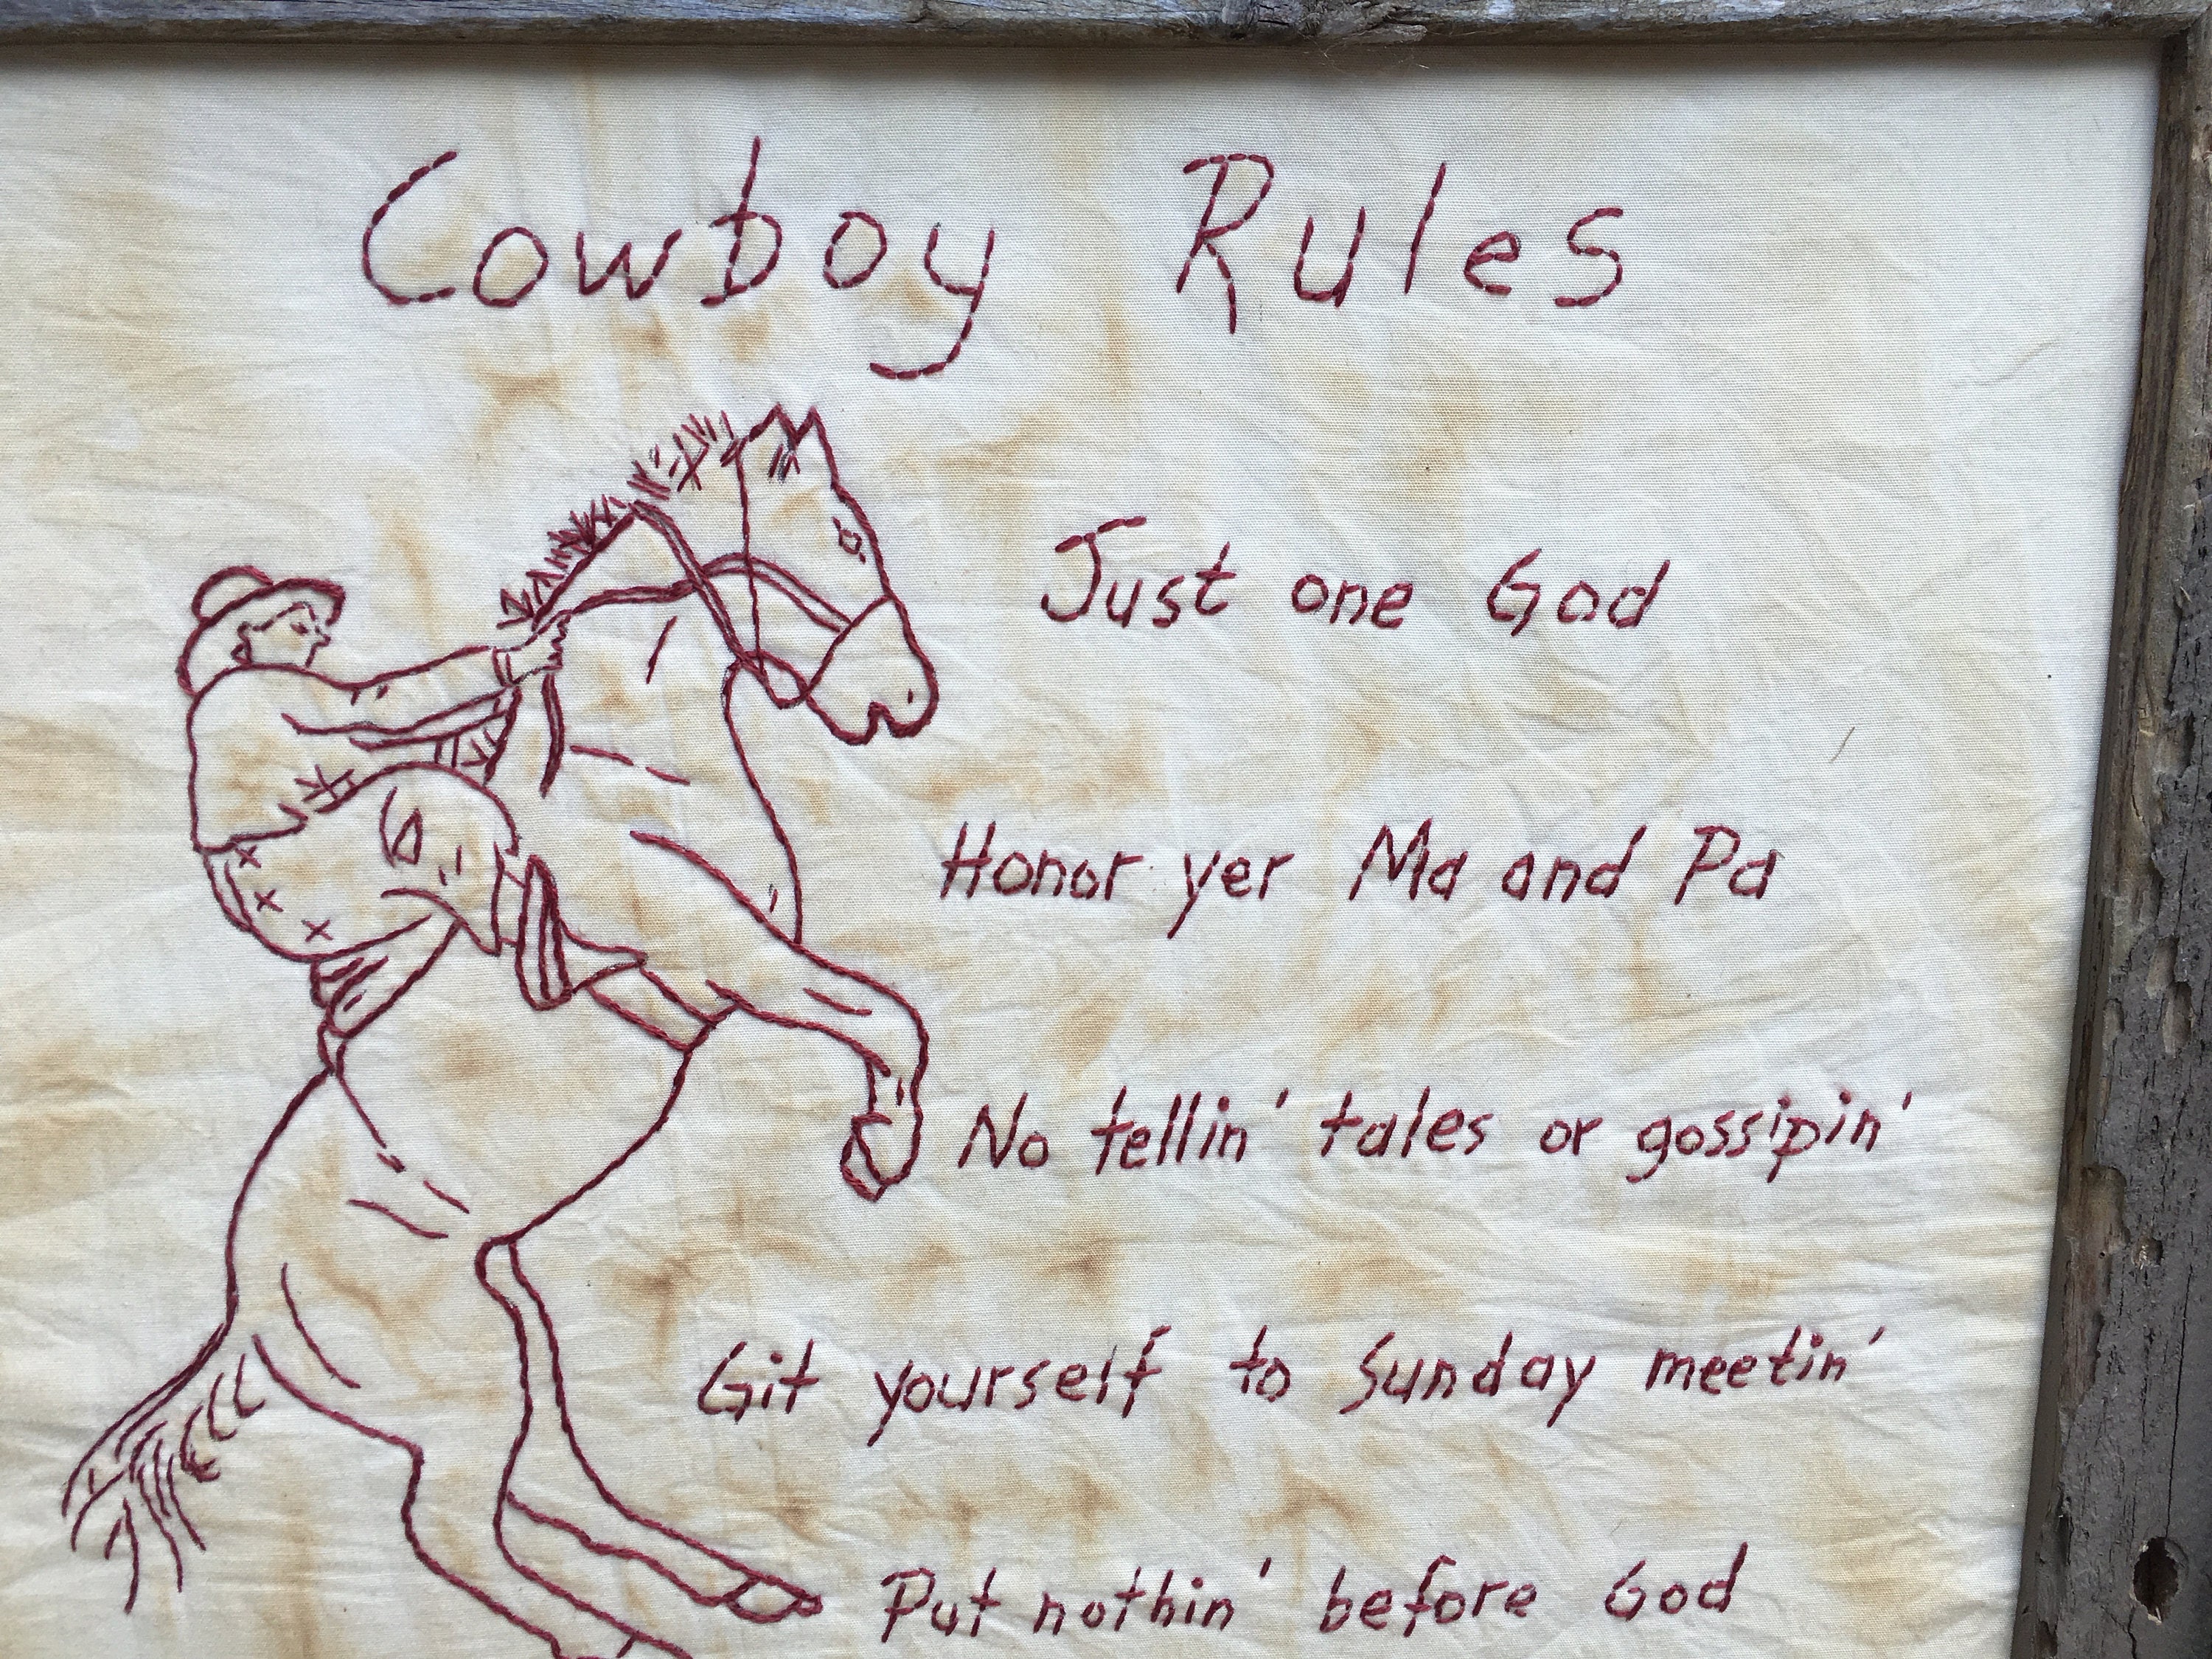 Cowboy Rules
Just one God
Honor yer Ma and Pa
No tellin' tales or gossipin'
Git yourself to Sunday meetin'
Put nothin' before God